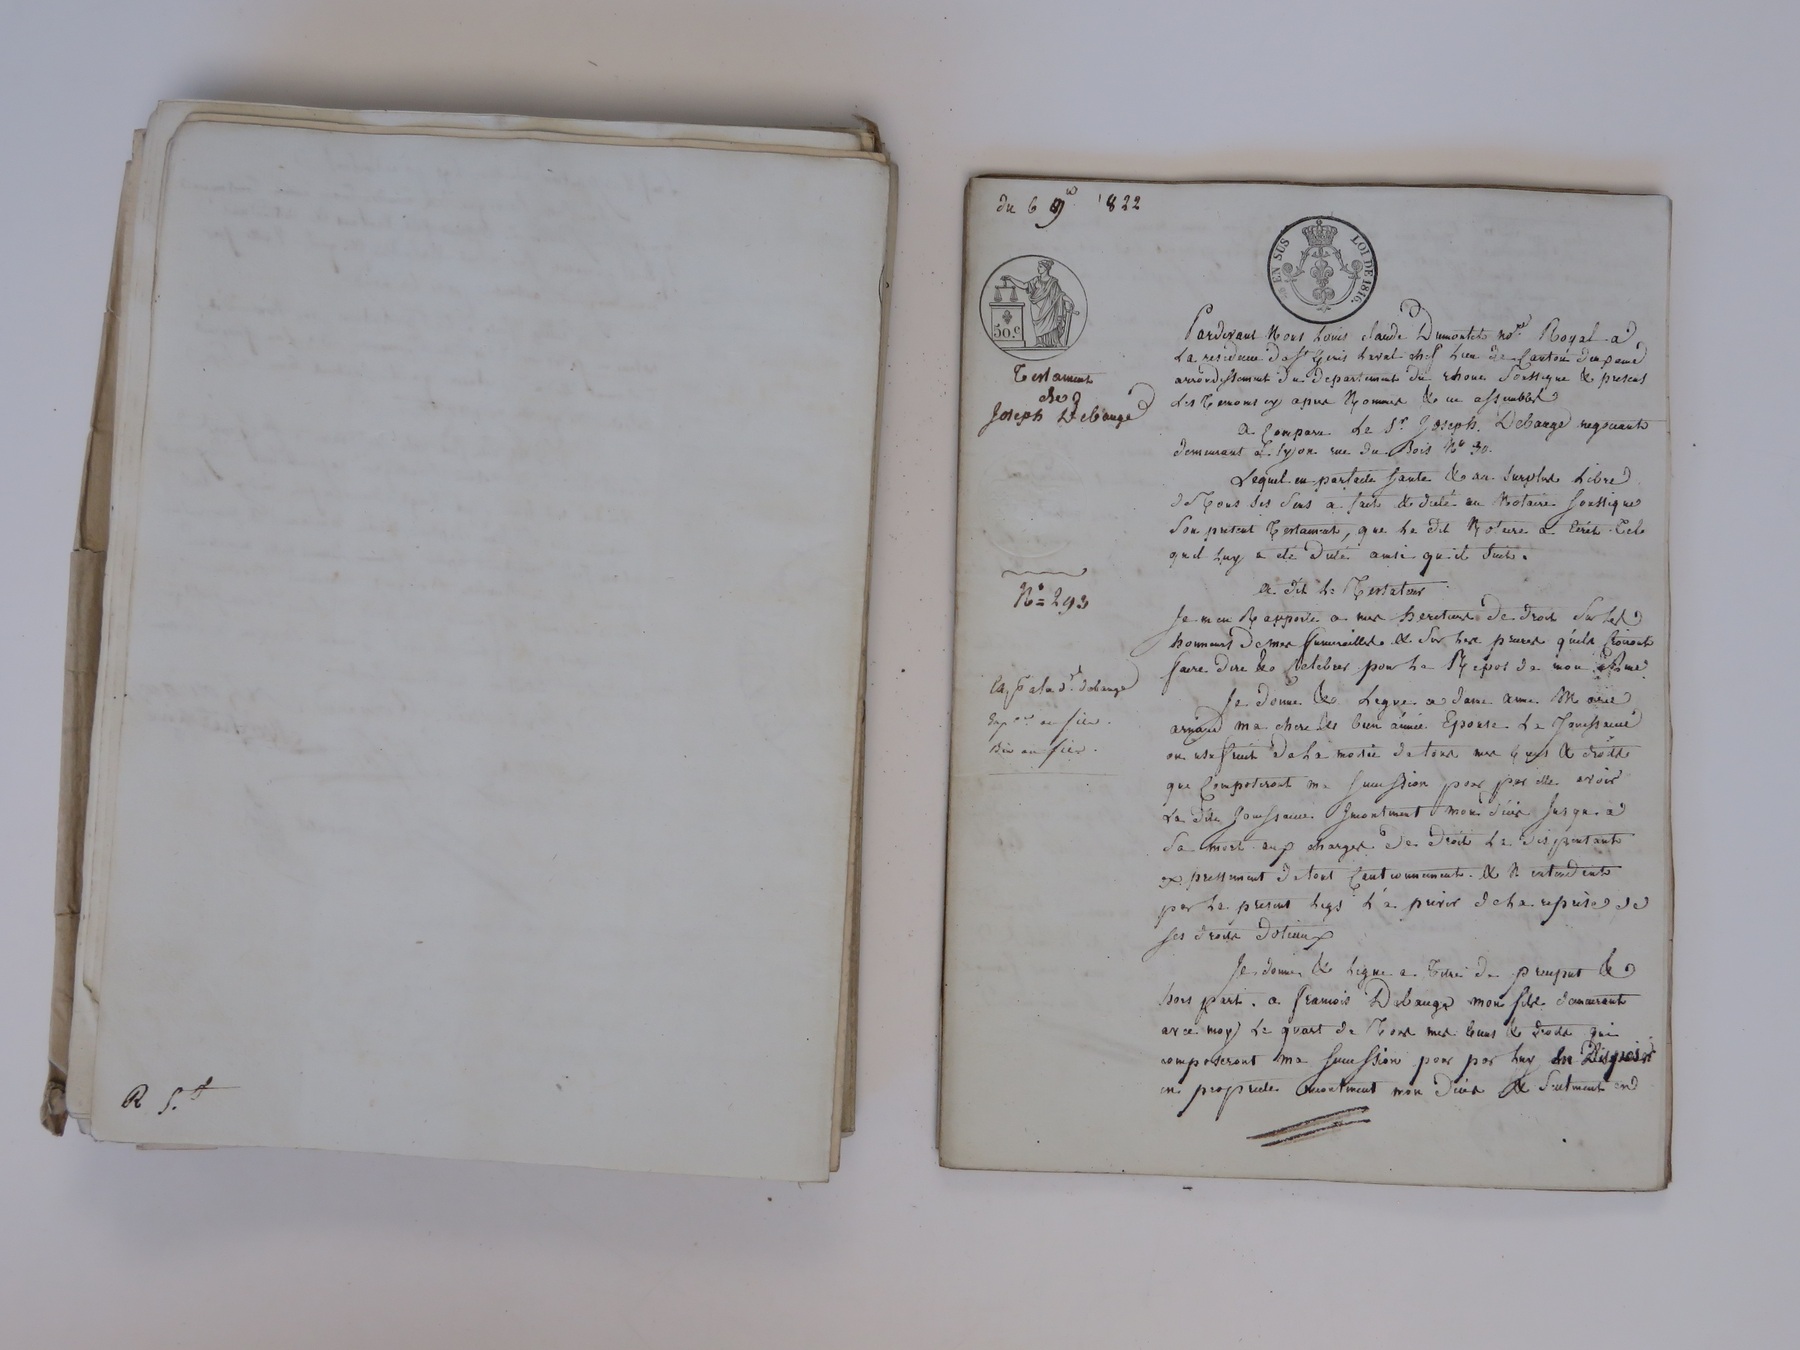 R S.t
du 6 9re 1822
EN SUS LOI DE 1816.
50.c
Testament
de
Joseph Debauge
N.o = 293
Exp.on au fils.
Pardevant Nous Louis Claude Dumontet no.re Royal a
La residence de St Genis Laval chef Lieu de Canton
arrondissement du departement du rhone Soussigné & presens
Les temoins cy apres Nommés & en assemblé
a Comparu Le Sr. Joseph Debauge negociant
demeurant a Lyon rue du Bois No 30.
Lequel en parfaite santé & au surplus Libre
de Tous ses sens a fait & dicté au Notaire soussigné
Son present Testament, que Le dit Notaire a Ecrit Tel
quil Luy a été dicté ainsi qu'il suit.
a dit Le Testateur
Je men Rapporte a mes heritiers de droit Sur Les
honneurs de mes funerailles & Sur Les prieres quils Croiront
faire dire & Celebrer pour Le Repos de mon ame.
Je donne & Legue a dame anne Marie
arnaud ma chere & bien aimée Epouse La Jouissance
ou usufruit de La moitié de tous mes biens & droits
que Composeront ma succession pour par elle avoir
La dite Jouissance Incontinent mon décès Jusqu'a
Sa mort aux charges de droit La dispensant
expressement de tout Cautionnement & N'entendant
par Le present Legs L'a priver de La reprise de
Ses droits dotaux
Je donne & Legue a Titre de preciput &
hors part. a francois Debauge mon fils demeurant
avec moy Le quart de Tous mes biens & droits qui
composeront ma succession pour par Luy En Disposer
en proprieté incontinent mon décès & seulment en